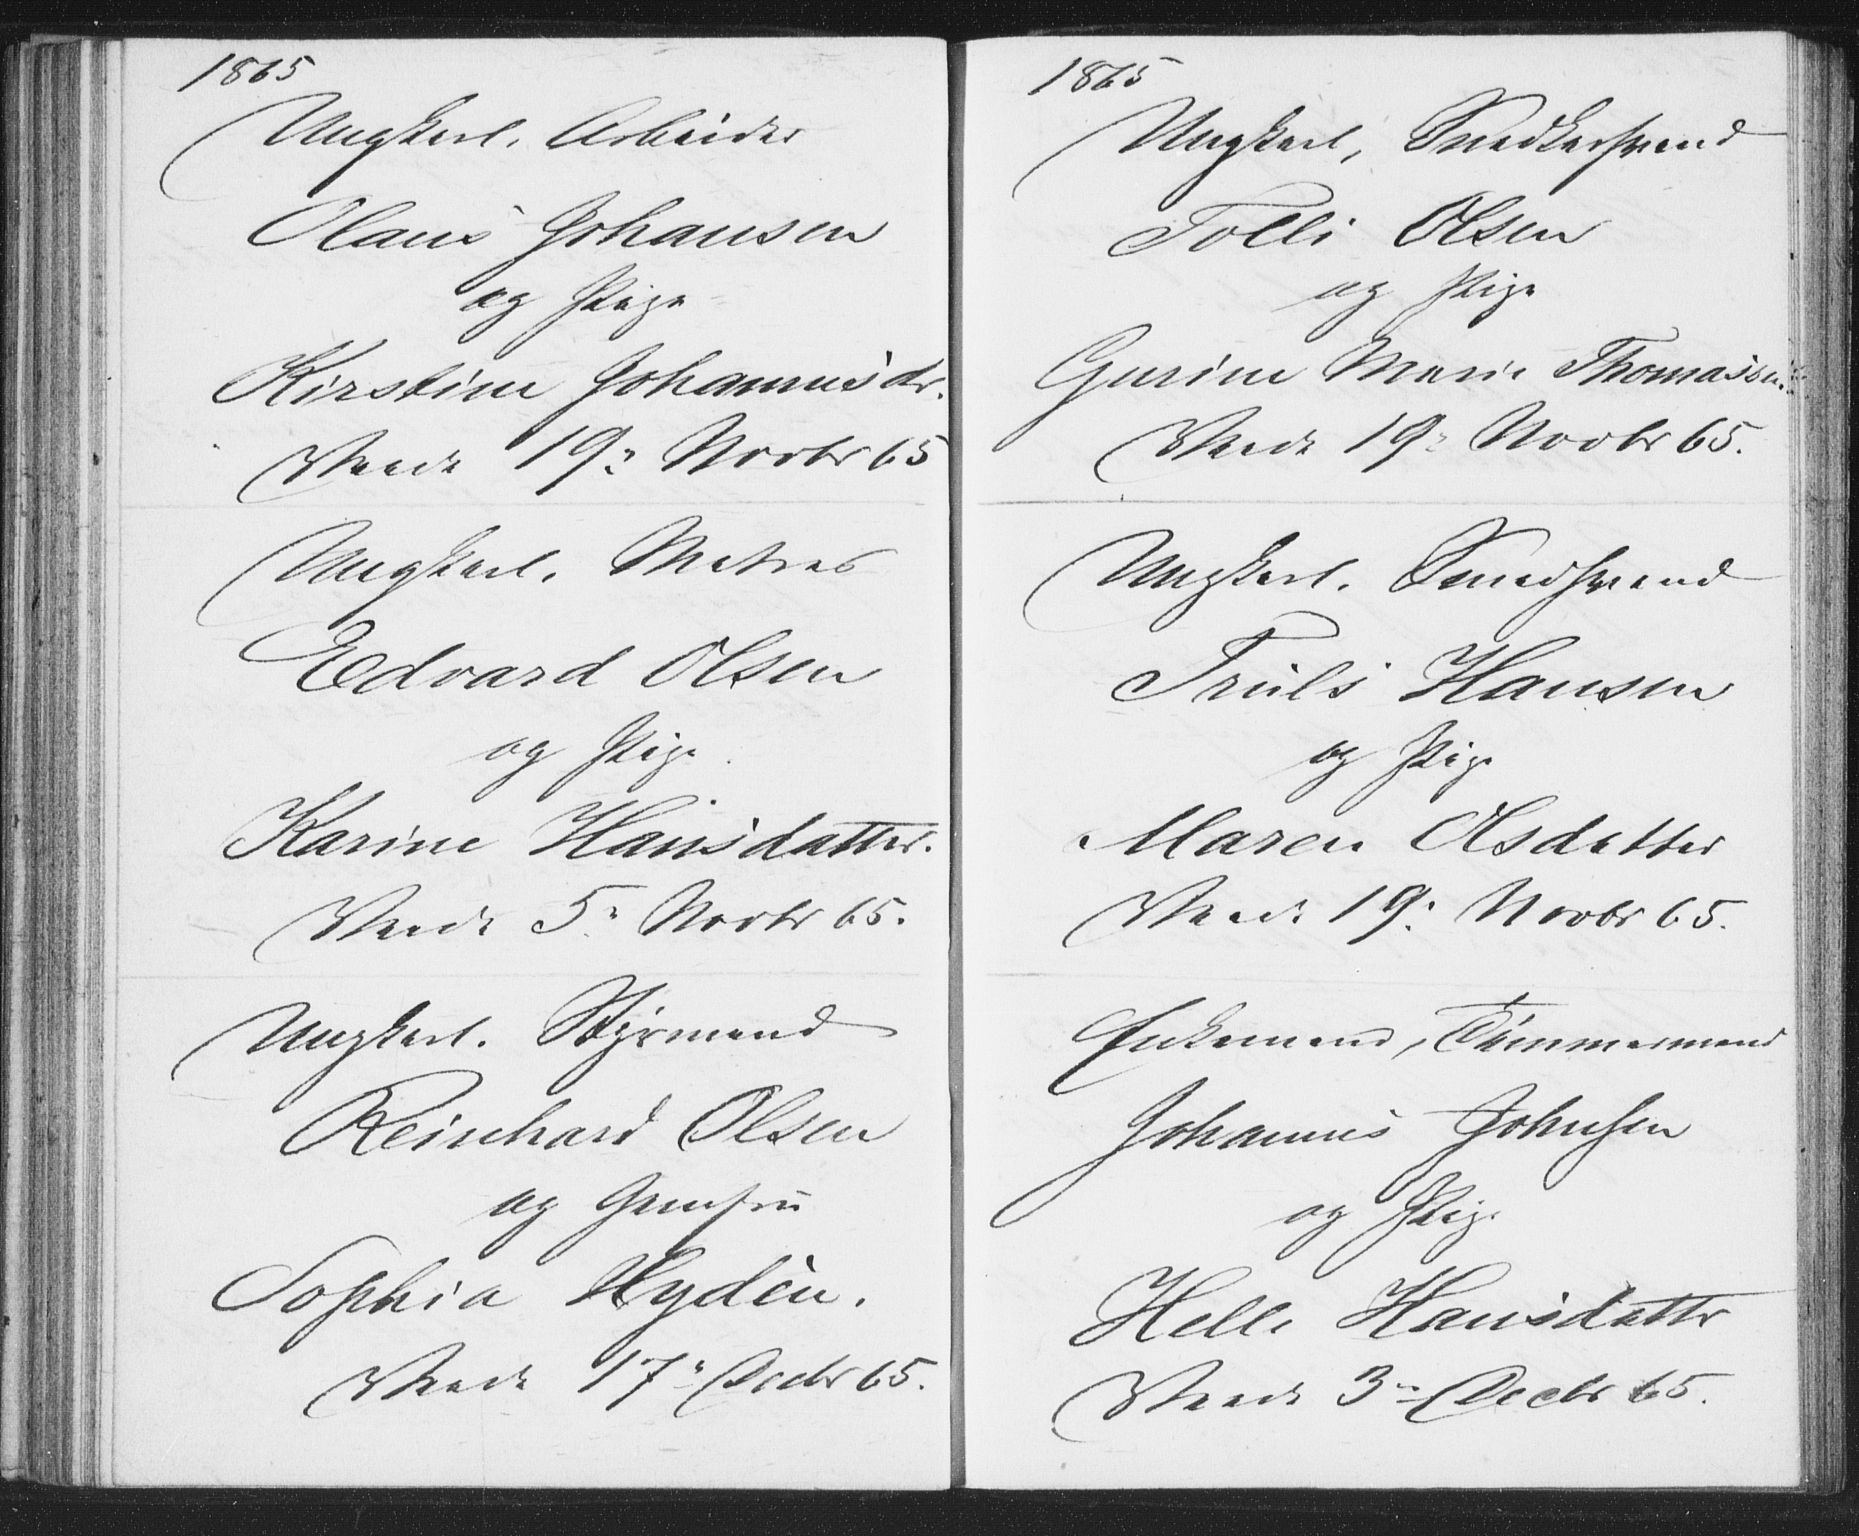 1865
Ungkarl. Arbeider
Olaus Johansen
og Pige
Kirstine Johannisdr.
Viede 19: Novbr 65
Ungkarl. Matros
Edvard Olsen
og Pige
Karine Hansdatter.
Viede 5: Novbr 65.
Ungkarl. Styrmand
Reinhard Olsen
og Jomfru
Sophia Hydén.
Viede 17: Decbr 65.
1865
Ungkarl, Snedkersvend
Tolli Olsen
og Pige
Gurine Marie Thomassen
Viede 19: Novbr 65.
Ungkarl. Smedsvend
Truls Hansen
og Pige
Maren Olsdatter
Viede 19: Novbr 65.
Enkemand, Tømmermand
Johannis Johnsen
og Pige
Helle Hansdatter
Viede 3: Decbr 65.